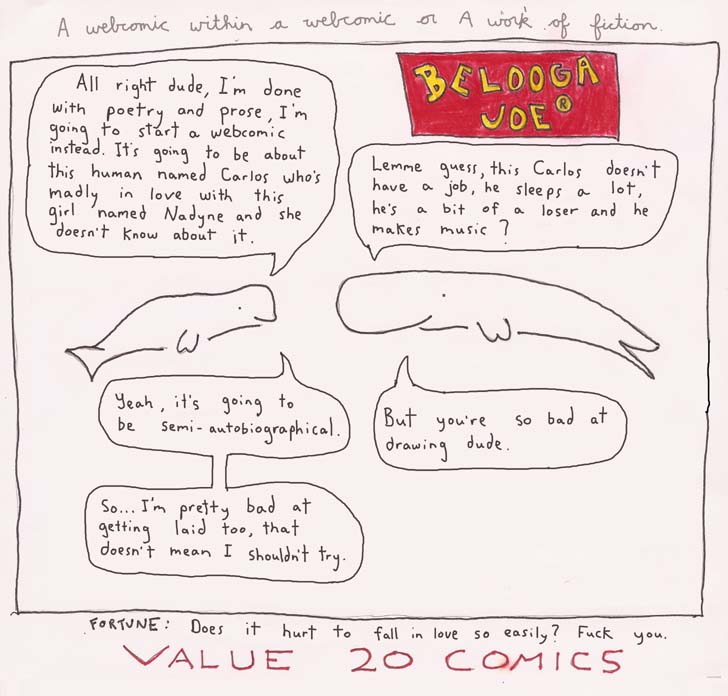 A webcomic within a webcomic or A work of fiction.
BELOOGA
JOE®
All right dude, I'm done
with poetry and prose, I'm
going to start a webcomic
instead. It's going to be about
this human named Carlos who's
madly in love with this
girl named Nadyne and she
doesn't know about it.
Lemme guess, this Carlos doesn't
have a job, he sleeps a lot,
he's a bit of a loser and he
makes music?
Yeah, it's going to
be semi-autobiographical.
But you're so bad at
drawing dude.
So... I'm pretty bad at
getting laid too, that
doesn't mean I shouldn't try.
FORTUNE: Does it hurt to fall in love so easily? Fuck you.
VALUE 20 COMICS